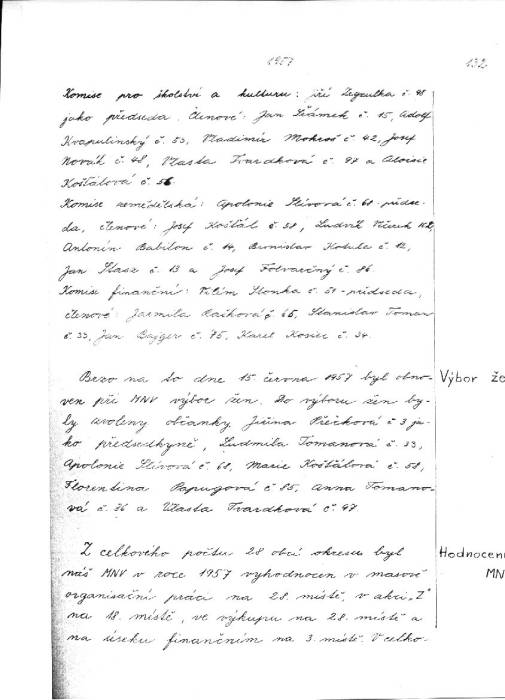 1957
132
Komise pro školství a kulturu: Jiří Zegzulka č. 98
jako předseda. Členové: Jan Šrámek č. 15, Adolf
Kvapulinský č. 53, Vladimír Mokroš č. 42, Josef
Novák č. 48, Vlasta Tvardková č. 97 a Aloisie
Košťálová č. 56
Komise zemědělská: Apolonie Slívová č. 68 - předse-
da, členové: Josef Košťál č. 58, Ludvík
Antonín Babilon č. 14, Bronislav č. 12,
Jan č. 13 a Josef Folvarčný č. 86.
Komise finanční: Vilém Slonka č. 51 - předseda,
členové: Jarmila č. 65, Stanislav Toman
č. 33, Jan Bajger č. 75, Karel č. 34.
Brzo na to dne 15. června 1957 byl obno-
Výbor že
ven při MNV výbor žen. Do výboru žen by-
ly zvoleny občanky Jiřina č 3 ja-
ko předsedkyně, Ludmila Tomanová č. 33,
Apolonie Slívová č. 68, Marie Košťálová č. 58,
Florentina Papugová č. 85, Anna Tomano-
vá č. 36 a Vlasta Tvardková č. 97.
Z celkového počtu 28 obcí okresu byl
Hodnocení
náš MNV v roce 1957 vyhodnocen v masově
MN
organisační práci na 28. místě, v akci „Z"
na 18. místě, ve výkupu na 28. místě a
na úseku finančním na 3. místě. V celko-